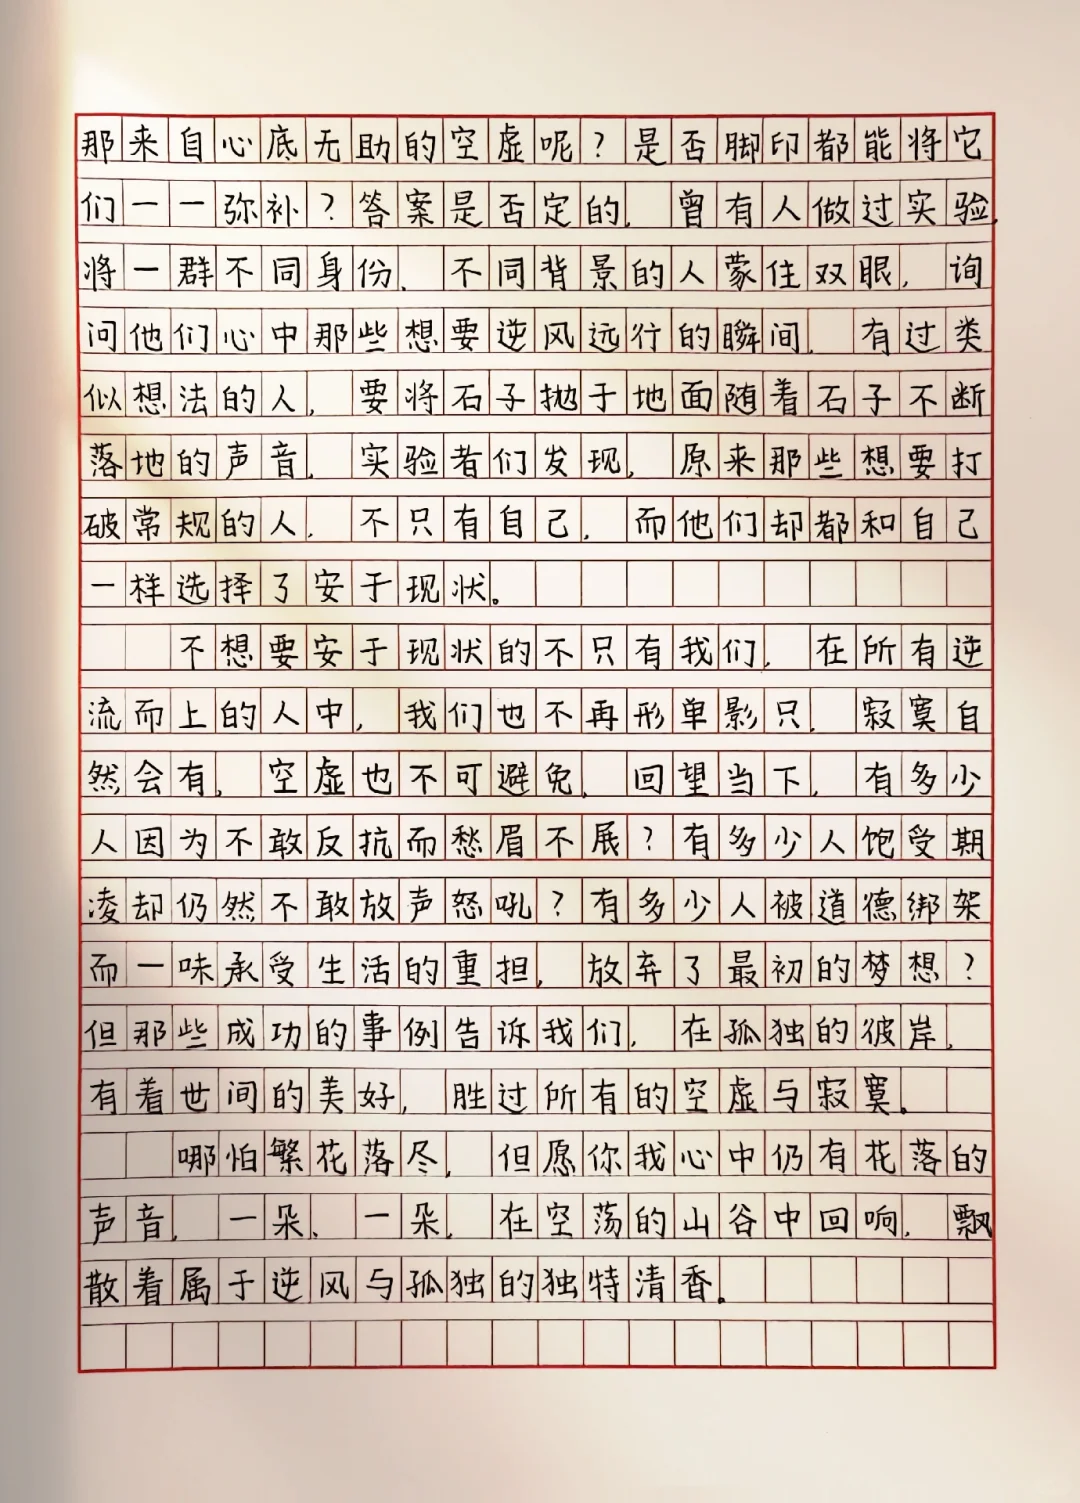 那来自心底无助的空虚呢?是否脚印都能将它
们一一弥补?答案是否定的,曾有人做过实验,
将一群不同身份、不同背景的人蒙住双眼,询
问他们心中那些想要逆风远行的瞬间,有过类
似想法的人,要将石子抛于地面随着石子不断
落地的声音,实验者们发现,原来那些想要打
破常规的人,不只有自己,而他们却都和自己
一样选择了安于现状。
不想要安于现状的不只有我们,在所有逆
流而上的人中,我们也不再形单影只,寂寞自
然会有,空虚也不可避免,回望当下,有多少
人因为不敢反抗而愁眉不展?有多少人饱受期
凌却仍然不敢放声怒吼?有多少人被道德绑架
而一味承受生活的重担,放弃了最初的梦想?
但那些成功的事例告诉我们,在孤独的彼岸,
有着世间的美好,胜过所有的空虚与寂寞。
哪怕繁花落尽,但愿你我心中仍有花落的
声音,一朵、一朵,在空荡的山谷中回响,飘
散着属于逆风与孤独的独特清香。